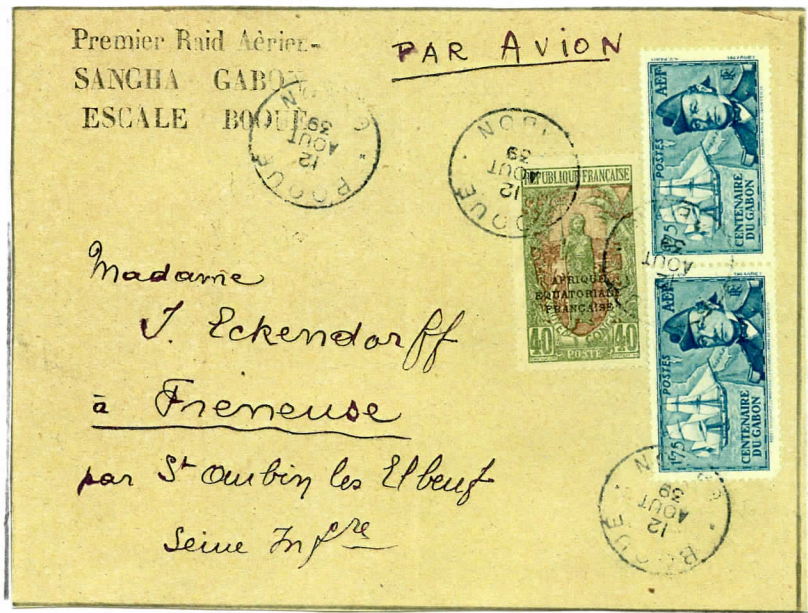 Premier Raid Aérien-
SANGHA GABON
ESCALE BOOUÉ
PAR AVION
BOOUÉ
12
AOUT
39
GABON
BOOUÉ
12
AOUT
39
GABON
REPUBLIQUE FRANÇAISE
AFRIQUE
EQUATORIALE
FRANÇAISE
40 40
POSTE
AEF RF
POSTES
1F75
CENTENAIRE
DU GABON
AOUT
AEF RF
POSTES
1F75
CENTENAIRE
DU GABON
Madame
J. Eckendorff
à Freneuse
par St Aubin les Elbeuf
Seine Infre
BOOUÉ
12
AOUT
39